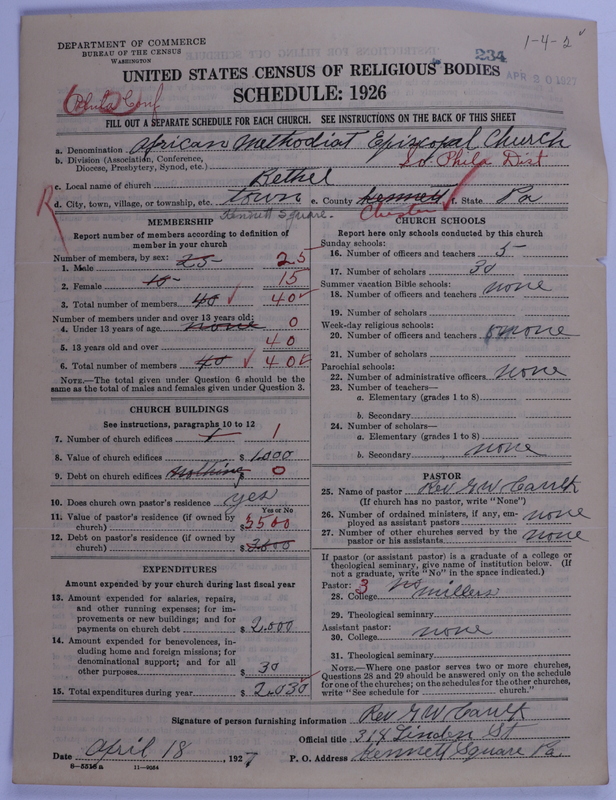 DEPARTMENT OF COMMERCE
BUREAU OF THE CENSUS
WASHINGTON
1-4-2
234
APR 20 1927
UNITED STATES CENSUS OF RELIGIOUS BODIES
SCHEDULE: 1926
Phila Conf
FILL OUT A SEPARATE SCHEDULE FOR EACH CHURCH. SEE INSTRUCTIONS ON THE BACK OF THIS SHEET
a. Denomination African Methodist Episcopal Church
b. Division (Association, Conference, Diocese, Presbytery, Synod, etc.) So Phila Dist
c. Local name of church Bethel
d. City, town, village, or township, etc. town e. County Kennett f. State Pa
Kennett Square. Chester
R
MEMBERSHIP
Report number of members according to definition of
member in your church
Number of members, by sex:
1. Male 25 25
2. Female 15 15
3. Total number of members 40 40
Number of members under and over 13 years old:
4. Under 13 years of age none 0
5. 13 years old and over 40
6. Total number of members 40 40
NOTE.—The total given under Question 6 should be
the same as the total of males and females given under Question 3.
CHURCH BUILDINGS
See instructions, paragraphs 10 to 12
7. Number of church edifices 1 1
8. Value of church edifices $1,000
9. Debt on church edifices nothing $ 0
10. Does church own pastor's residence yes
Yes or No
11. Value of pastor's residence (if owned by
church) $3500
12. Debt on pastor's residence (if owned by
church) $3500
EXPENDITURES
Amount expended by your church during last fiscal year
13. Amount expended for salaries, repairs,
and other running expenses; for im-
provements or new buildings; and for
payments on church debt $2,000
14. Amount expended for benevolences, in-
cluding home and foreign missions; for
denominational support; and for all
other purposes $30
15. Total expenditures during year $2,030
CHURCH SCHOOLS
Report here only schools conducted by this church
Sunday schools:
16. Number of officers and teachers 5
17. Number of scholars 30
Summer vacation Bible schools:
18. Number of officers and teachers none
19. Number of scholars
Week-day religious schools:
20. Number of officers and teachers none
21. Number of scholars
Parochial schools:
22. Number of administrative officers none
23. Number of teachers—
a. Elementary (grades 1 to 8)
b. Secondary
24. Number of scholars—
a. Elementary (grades 1 to 8)
b. Secondary none
PASTOR
25. Name of pastor Rev G W Caulk
(If church has no pastor, write "None")
26. Number of ordained ministers, if any, em-
ployed as assistant pastors none
27. Number of other churches served by the
pastor or his assistants none
If pastor (or assistant pastor) is a graduate of a college or
theological seminary, give name of institution below. (If
not a graduate, write "No" in the space indicated.)
Pastor: 3
28. College millers
29. Theological seminary
Assistant pastor:
30. College none
31. Theological seminary
NOTE.—Where one pastor serves two or more churches,
Questions 28 and 29 should be answered only on the schedule
for one of the churches; on the schedules for the other churches,
write "See schedule for church."
Signature of person furnishing information Rev G W Caulk
Official title 318 Linden St
Date April 18, 1927 P. O. Address Kennett Square Pa
8—5518 a 11—9054